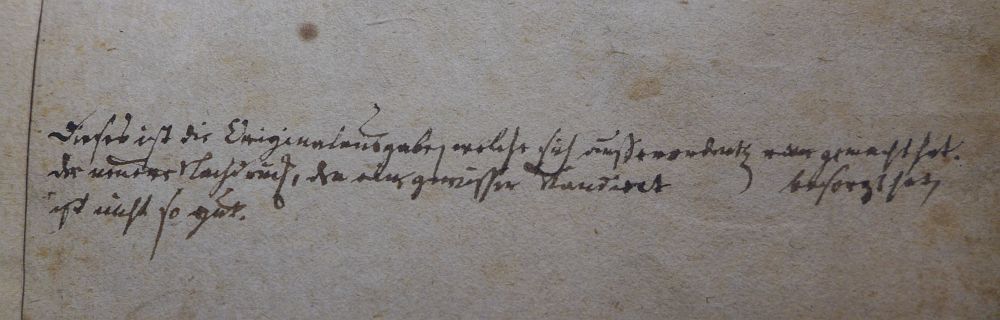 Dieses ist die Originalausgabe, welche sich außerordentl. rar gemacht hat.
der neuere Nachdruck, den ein gewisser Kandidat besorgt hat,
ist nicht so gut.